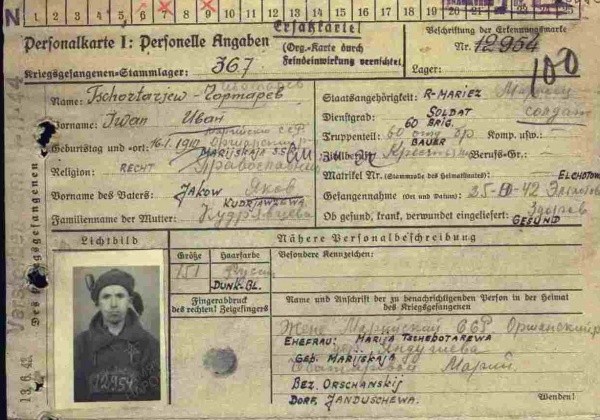 N 1 2 3 4 5 6 7 8 9 10 11 12 13 14 15 16 17 18 19 20 21 22 23 24 25
Personalkarte I: Personelle Angaben
Ersatzkarte!
(Org.-Karte durch Feindeinwirkung vernichtet)
Beschriftung der Erkennungsmarke
Nr. 12954
Kriegsgefangenen-Stammlager: 367
Lager:
100
Name: Tschortarjew - Чортарев
Vorname: Iwan Иван
Geburtstag und -ort: 16.1.1910
MARIJSKAJA SSR
Religion: RECHT Православн
Vorname des Vaters: JAKOW Яков
KUDRJAWZEWA
Familienname der Mutter: Кудрявцева
Staatsangehörigkeit: R-MARIEZ Мариец
Dienstgrad: SOLDAT солдат
60 BRIG.
Truppenteil: 60 отд бр Komp. usw.:
BAUER
Zivilberuf: Крестьян Berufs-Gr.:
Matrikel Nr. (Stammrolle des Heimatstaates): ELCHOTOWO
Gefangennahme (Ort und Datum): 25-10-42
Ob gesund, krank, verwundet eingeliefert: Здоров
GESUND
Des Kriegsgefangenen
13.6.42
Lichtbild
12954
Nähere Personalbeschreibung
Größe
151
Haarfarbe
Русы
DUNK-BL.
Besondere Kennzeichen:
Fingerabdruck
des rechten! Zeigefingers
Name und Anschrift der zu benachrichtigenden Person in der Heimat
des Kriegsgefangenen
Жене Марийский ССР Оршанский р
EHEFRAU: MARIJA TSCHEBOTAREWA
дер. Яндушева
GEB. MARIJSKAJA
Марий
BEZ. ORSCHANSKIJ
DORF. JANDUSCHEWA.
Wenden!